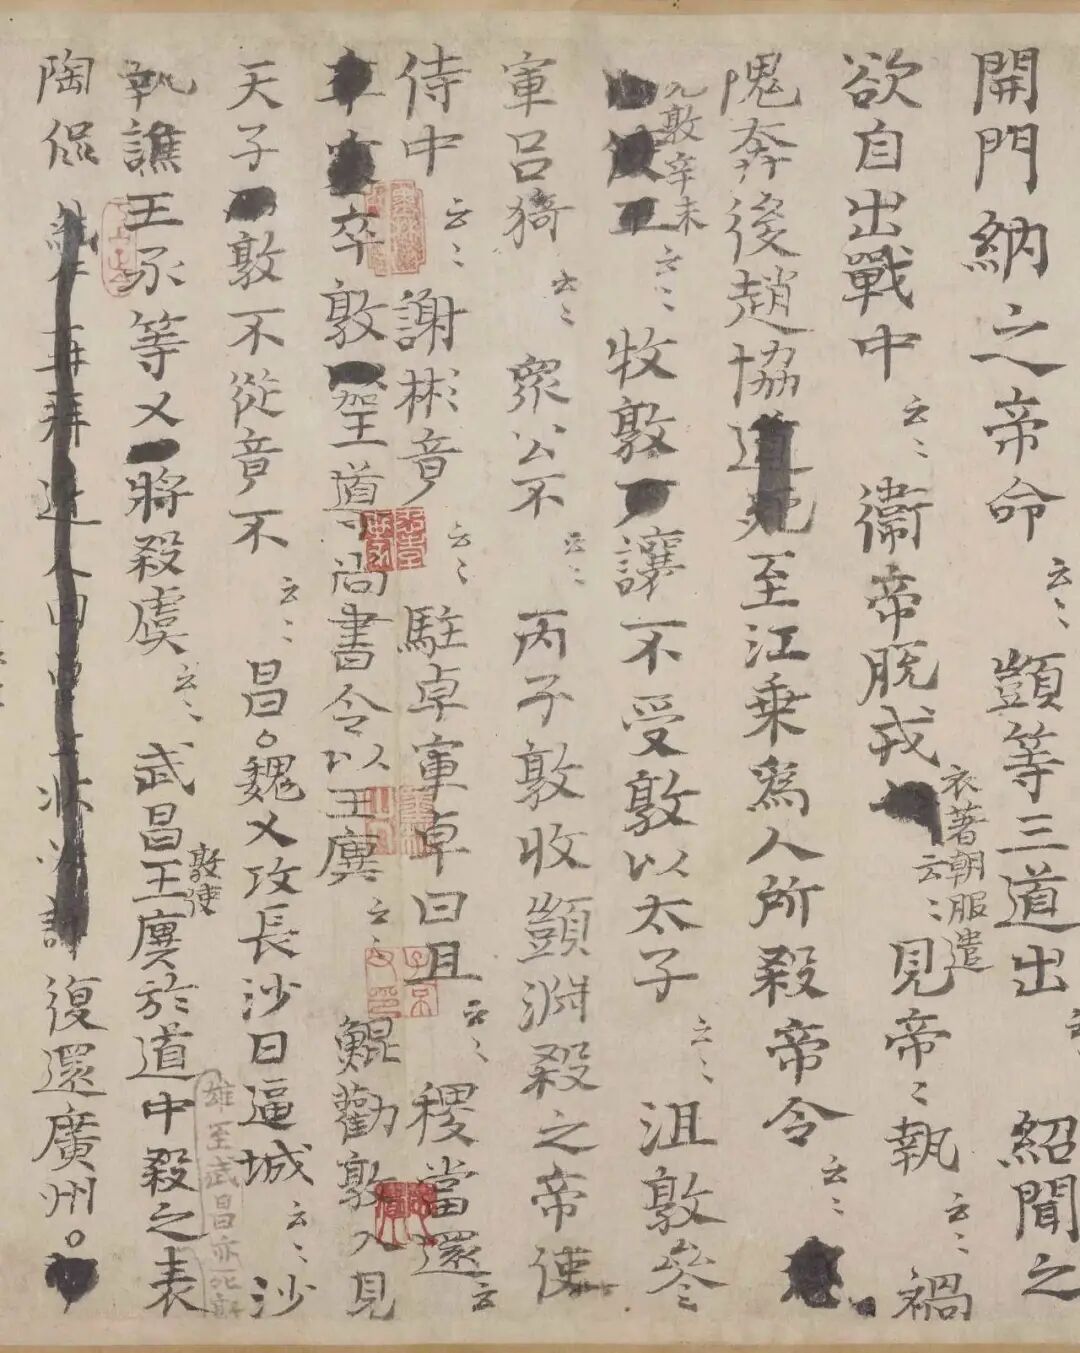 開門納之帝命云〻顗等三道出 紹聞之
欲自出戰中云〻衛帝脱戎衣著朝服遣云〻見帝〻執云〻禍
隗奔後趙協道死至江乘為人所殺帝令云〻
九敦辛未云〻牧敦讓不受敦以太子云〻沮敦參
軍呂猗云〻衆公不云〻丙子敦收顗淵殺之帝使
侍中云〻謝彬音云〻駐卓軍卓曰且云〻稷當還云
卒敦王導尚書令以王廙云〻鯤勸敦入見
天子敦不從竟不云〻昌。魏乂攻長沙日逼城云〻沙
執譙王承等乂將殺虞云〻武昌敦使王廙於道中殺之表
雄至武昌亦死
陶侃 復還廣州。